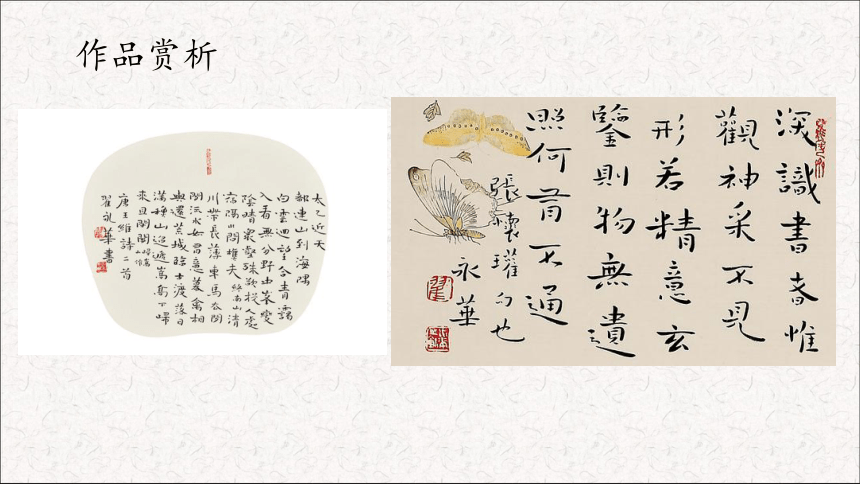 作品赏析
太乙近天
都連山到海隅
白雲迴望合青靄
入看無分野中峯變
陰晴衆壑殊欲投人處
宿隔水問樵夫 終南山 清
川帶長薄車馬去閑
閑流水如有意暮禽相
與還荒城臨古渡落日
滿秋山迢遞嵩高下歸
來且閉關 歸嵩山作
唐王維詩二首
翟永華書
深識書者惟
觀神采不見
形若精意玄
鑒則物無遺
照何有不通
張懷瓘句也
永華